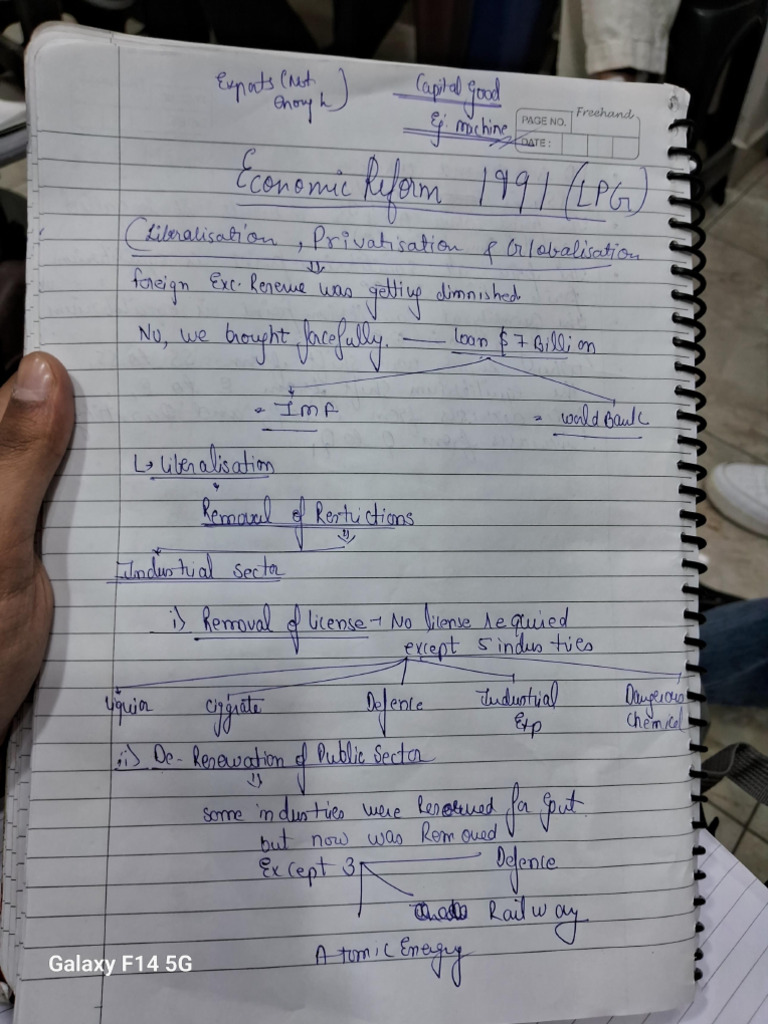 Exports (Not enough) Capital Good
Eg: machine
PAGE NO. Freehand
DATE:
Economic Reform 1991 (LPG)
(Liberalisation, Privatisation & Globalisation
foreign Exc. Reserve was getting diminished
No, we brought forcefully. — loan $ 7 Billion
= IMF = World Bank
↳ Liberalisation
Removal of Restrictions
Industrial sector
i) Removal of license → No license required
except 5 industies
liquior Ciggrate Defence Industrial Exp Dangerous Chemical
ii) De-Reservation of Public Sector
some industies were Reserved for Govt
but now was Removed
Except 3 Defence
Railway
Atomic Energy
Galaxy F14 5G